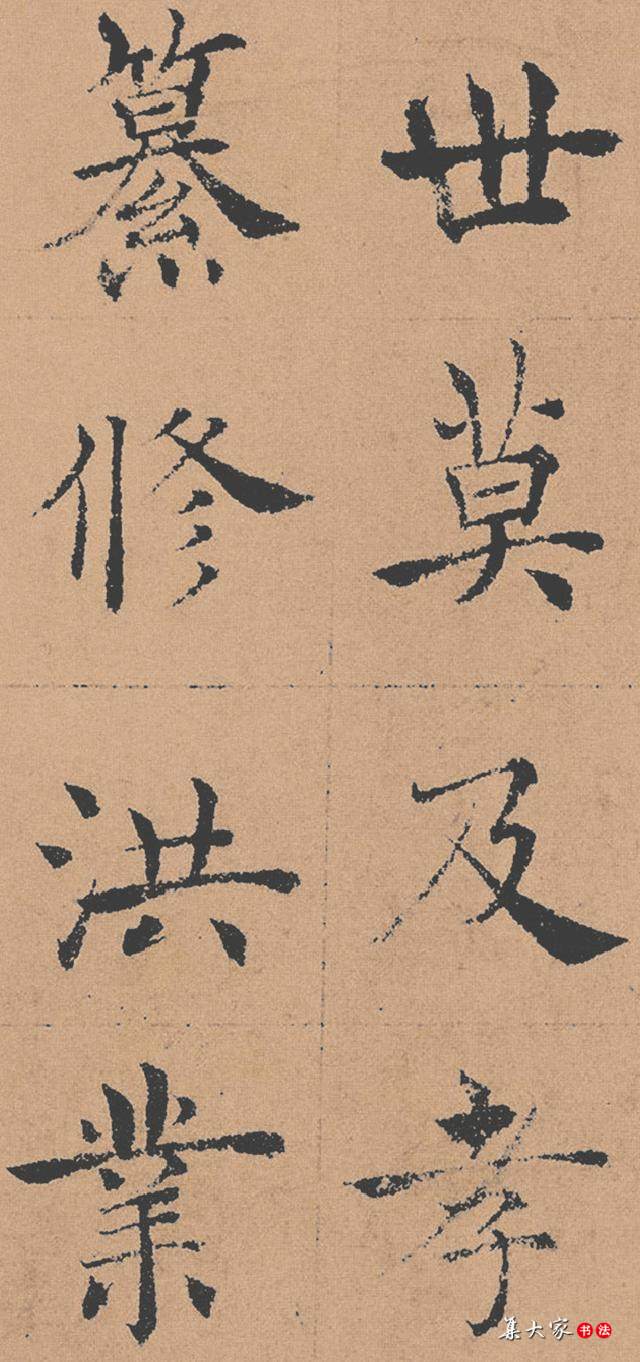 世莫及孝
纂修洪業
集大家书法